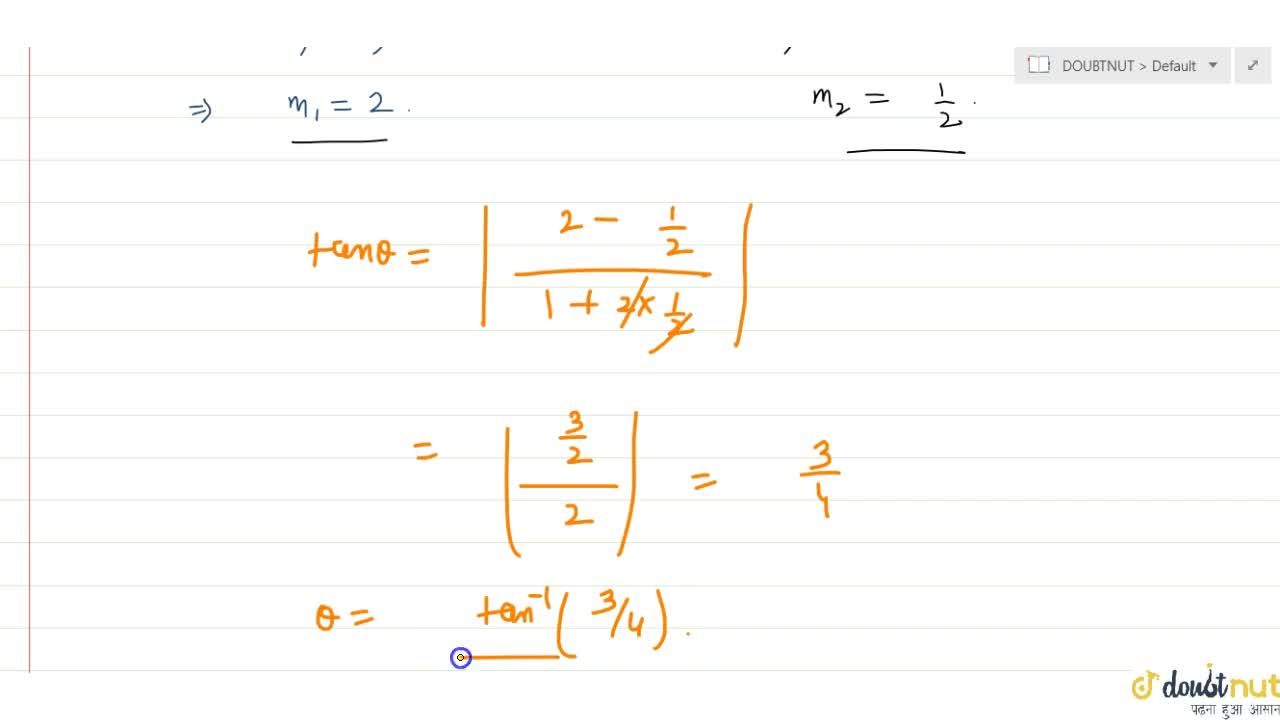 DOUBTNUT > Default
⇒ m₁ = 2.
m₂ = 1/2.
tanθ = | (2 - 1/2) / (1 + 2 × 1/2) |
= | (3/2) / 2 | = 3/4
θ = tan⁻¹(3/4).
doubtnut
पढ़ना हुआ आसान